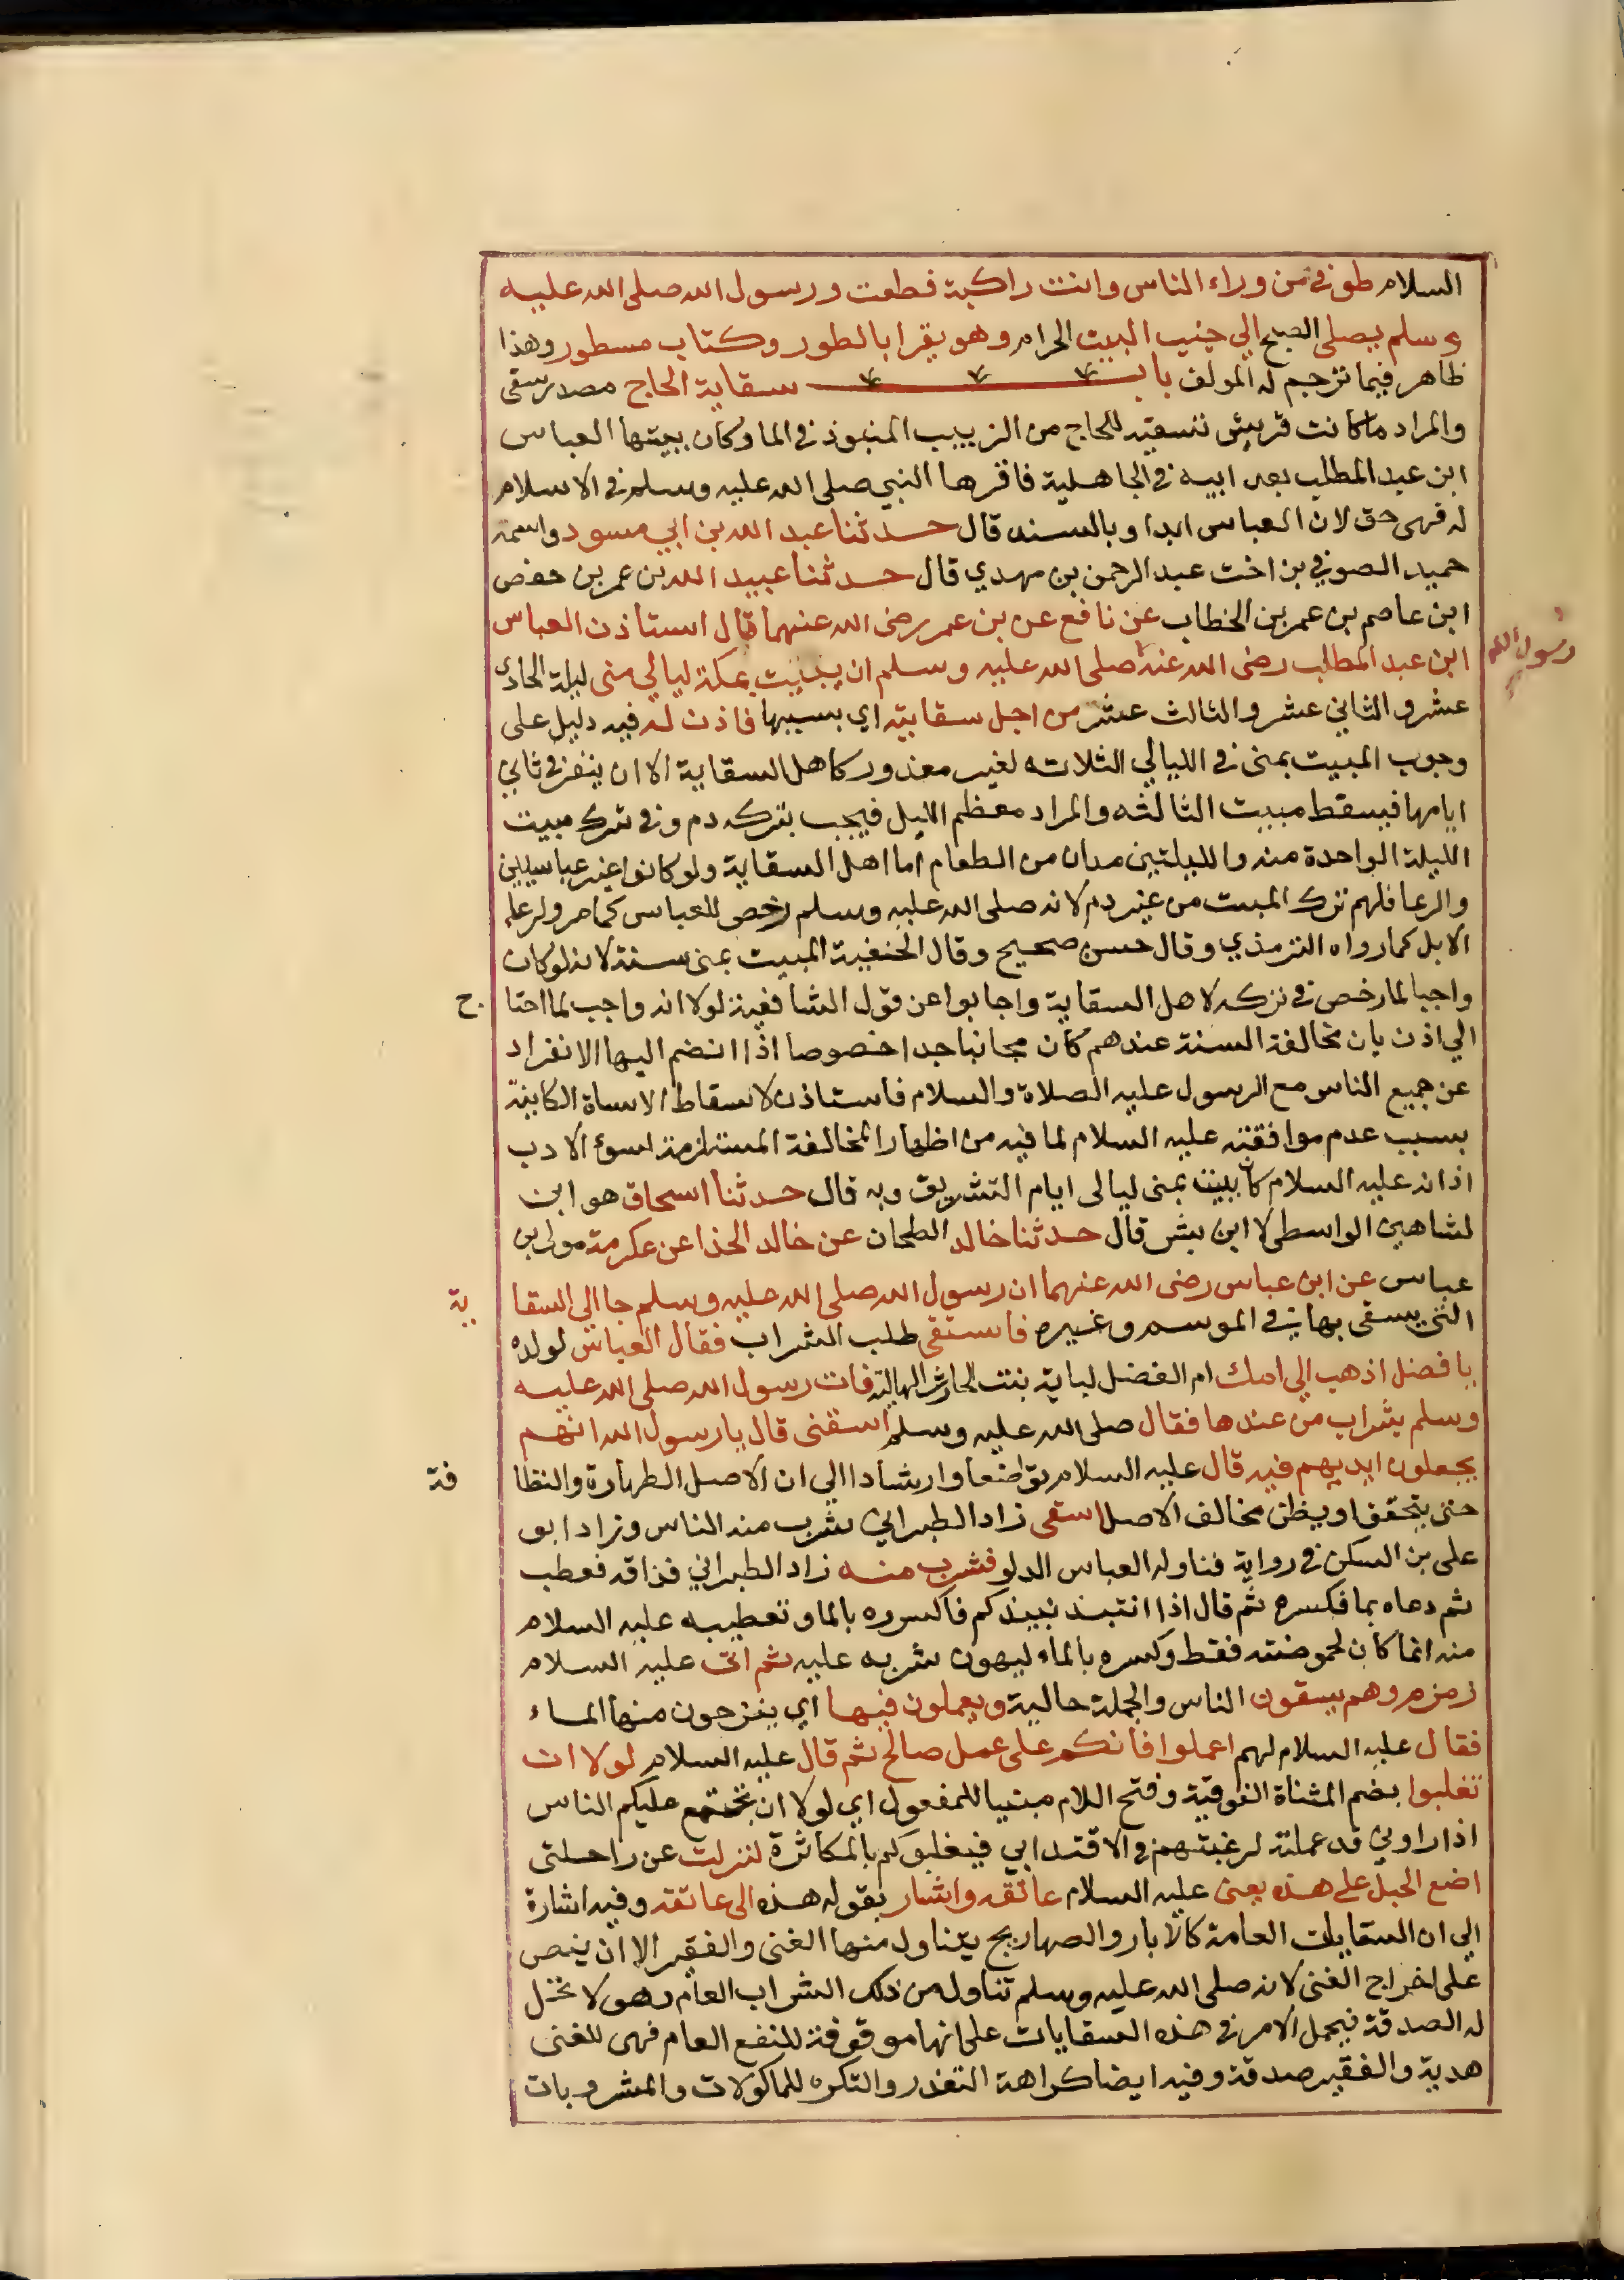 السلام طوفي من وراء الناس وانت راكبة فطفت ورسول الله صلى الله عليه
وسلم يصلى الصبح الي جنب البيت الحرام وهو يقرا بالطور وكتاب مسطور وهذا
ظاهر فيما ترجم له المولف باب سقاية الحاج مصدر سقى
والمراد ما كانت قريش تسقيه للحاج من الزبيب المنبوذ في الما وكان يليها العباس
ابن عبد المطلب بعد ابيه في الجاهلية فاقرها النبي صلى الله عليه وسلم في الاسلام
له فهى حق لال العباس ابدا وبالسند قال حدثنا عبد الله بن ابي مسود واسمه
حميد الصوفي بن اخت عبد الرحمن بن مهدي قال حدثنا عبيد الله بن عمر بن حفص
ابن عاصم بن عمر بن الخطاب عن نافع عن بن عمر رضى الله عنهما قال استاذن العباس
ابن عبد المطلب رضى الله عنه صلى الله عليه وسلم ان يبيت بمكة ليالي منى ليلة الحادى
رسول الله
عشر والثاني عشر والثالث عشر من اجل سقايته اي بسببها فاذن له فيه دليل على
وجوب المبيت بمنى في الليالي الثلاثه لغير معذور كاهل السقاية الا ان ينفر في ثاني
ايامها فيسقط مبيت الثالثه والمراد معظم الليل فيجب بتركه دم وفي ترك مبيت
الليلة الواحدة منه والليلتين مدان من الطعام اما اهل السقاية ولو كانوا غير عباسيين
والرعا فلهم ترك المبيت من غير دم لانه صلى الله عليه وسلم رخص للعباس كما مر ولرعاء
الابل كما رواه الترمذي وقال حسن صحيح وقال الحنفية المبيت بمنى سنة لانه لو كان
واجبا لما رخص في تركه لاهل السقاية واجابوا عن قول الشافعية لولا انه واجب لما احتاج
الي اذن بان مخالفة السنة عندهم كان مجانبا جدا خصوصا اذا انضم اليها الانفراد
عن جميع الناس مع الرسول عليه الصلاة والسلام فاستاذن لاسقاط الاساة الكاينة
بسبب عدم موافقته عليه السلام لما فيه من اظهار المخالفة المستلزمة لسوء الادب
اذ انه عليه السلام كان يبيت بمنى ليالى ايام التشريق وبه قال حدثنا اسحاق هو ابن
لشاهين الواسطى لا ابن بشر قال حدثنا خالد الطحان عن خالد الحذا عن عكرمة مولى بن
عباس عن ابن عباس رضى الله عنهما ان رسول الله صلى الله عليه وسلم جا الي السقاية
التى يسقى بها في الموسم وغيره فاستقى طلب الشراب فقال العباس لولده
يا فضل اذهب الي امك ام الفضل لبابة بنت الحارث الهالية فات رسول الله صلى الله عليه
وسلم بشراب من عندها فقال صلى الله عليه وسلم اسقنى قال يا رسول الله انهم
يجعلون ايديهم فيه قال عليه السلام تواضعا وارشادا الي ان الاصل الطهارة والنظافة
حتى يتحقق او يظن مخالف الاصل اسقى زاد الطبراني نشرب منه الناس وزاد ابو
على بن السكن في رواية فناوله العباس الدلو فشرب منه زاد الطبراني فذاقه فقطب
ثم دعاه بما فكسره ثم قال اذا انتبذ نبيذكم فاكسروه بالما وتقطيبه عليه السلام
منه انما كان لحموضته فقط وكسره بالماء ليهون شربه عليه ثم اتى عليه السلام
زمزم وهم يسقون الناس والجملة حالية ويعملون فيها اي ينزحون منها الماء
فقال عليه السلام لهم اعملوا فانكم على عمل صالح ثم قال عليه السلام لولا ان
تغلبوا بضم المثناة الفوقية وفتح اللام مبنيا للمفعول اي لولا ان يجتمع عليكم الناس
اذا راوني قد عملته لرغبتهم في الاقتدا بي فيغلبوكم بالمكاثرة لنزلت عن راحلتى
اضع الحبل على هذه يعنى عليه السلام عاتقه واشار بقوله هذه الى عاتقه وفيه اشارة
الي ان السقايات العامة كالابار والصهاريج يتناول منها الغنى والفقير الا ان ينص
على اخراج الغنى لانه صلى الله عليه وسلم تناول من ذلك الشراب العام وهو لا تحل
له الصدقة فيحمل الامر في هذه السقايات على انها موقوفة للنفع العام فهى للغنى
هدية والفقير صدقة وفيه ايضا كراهة التقذر والتكره للماكولات والمشروبات